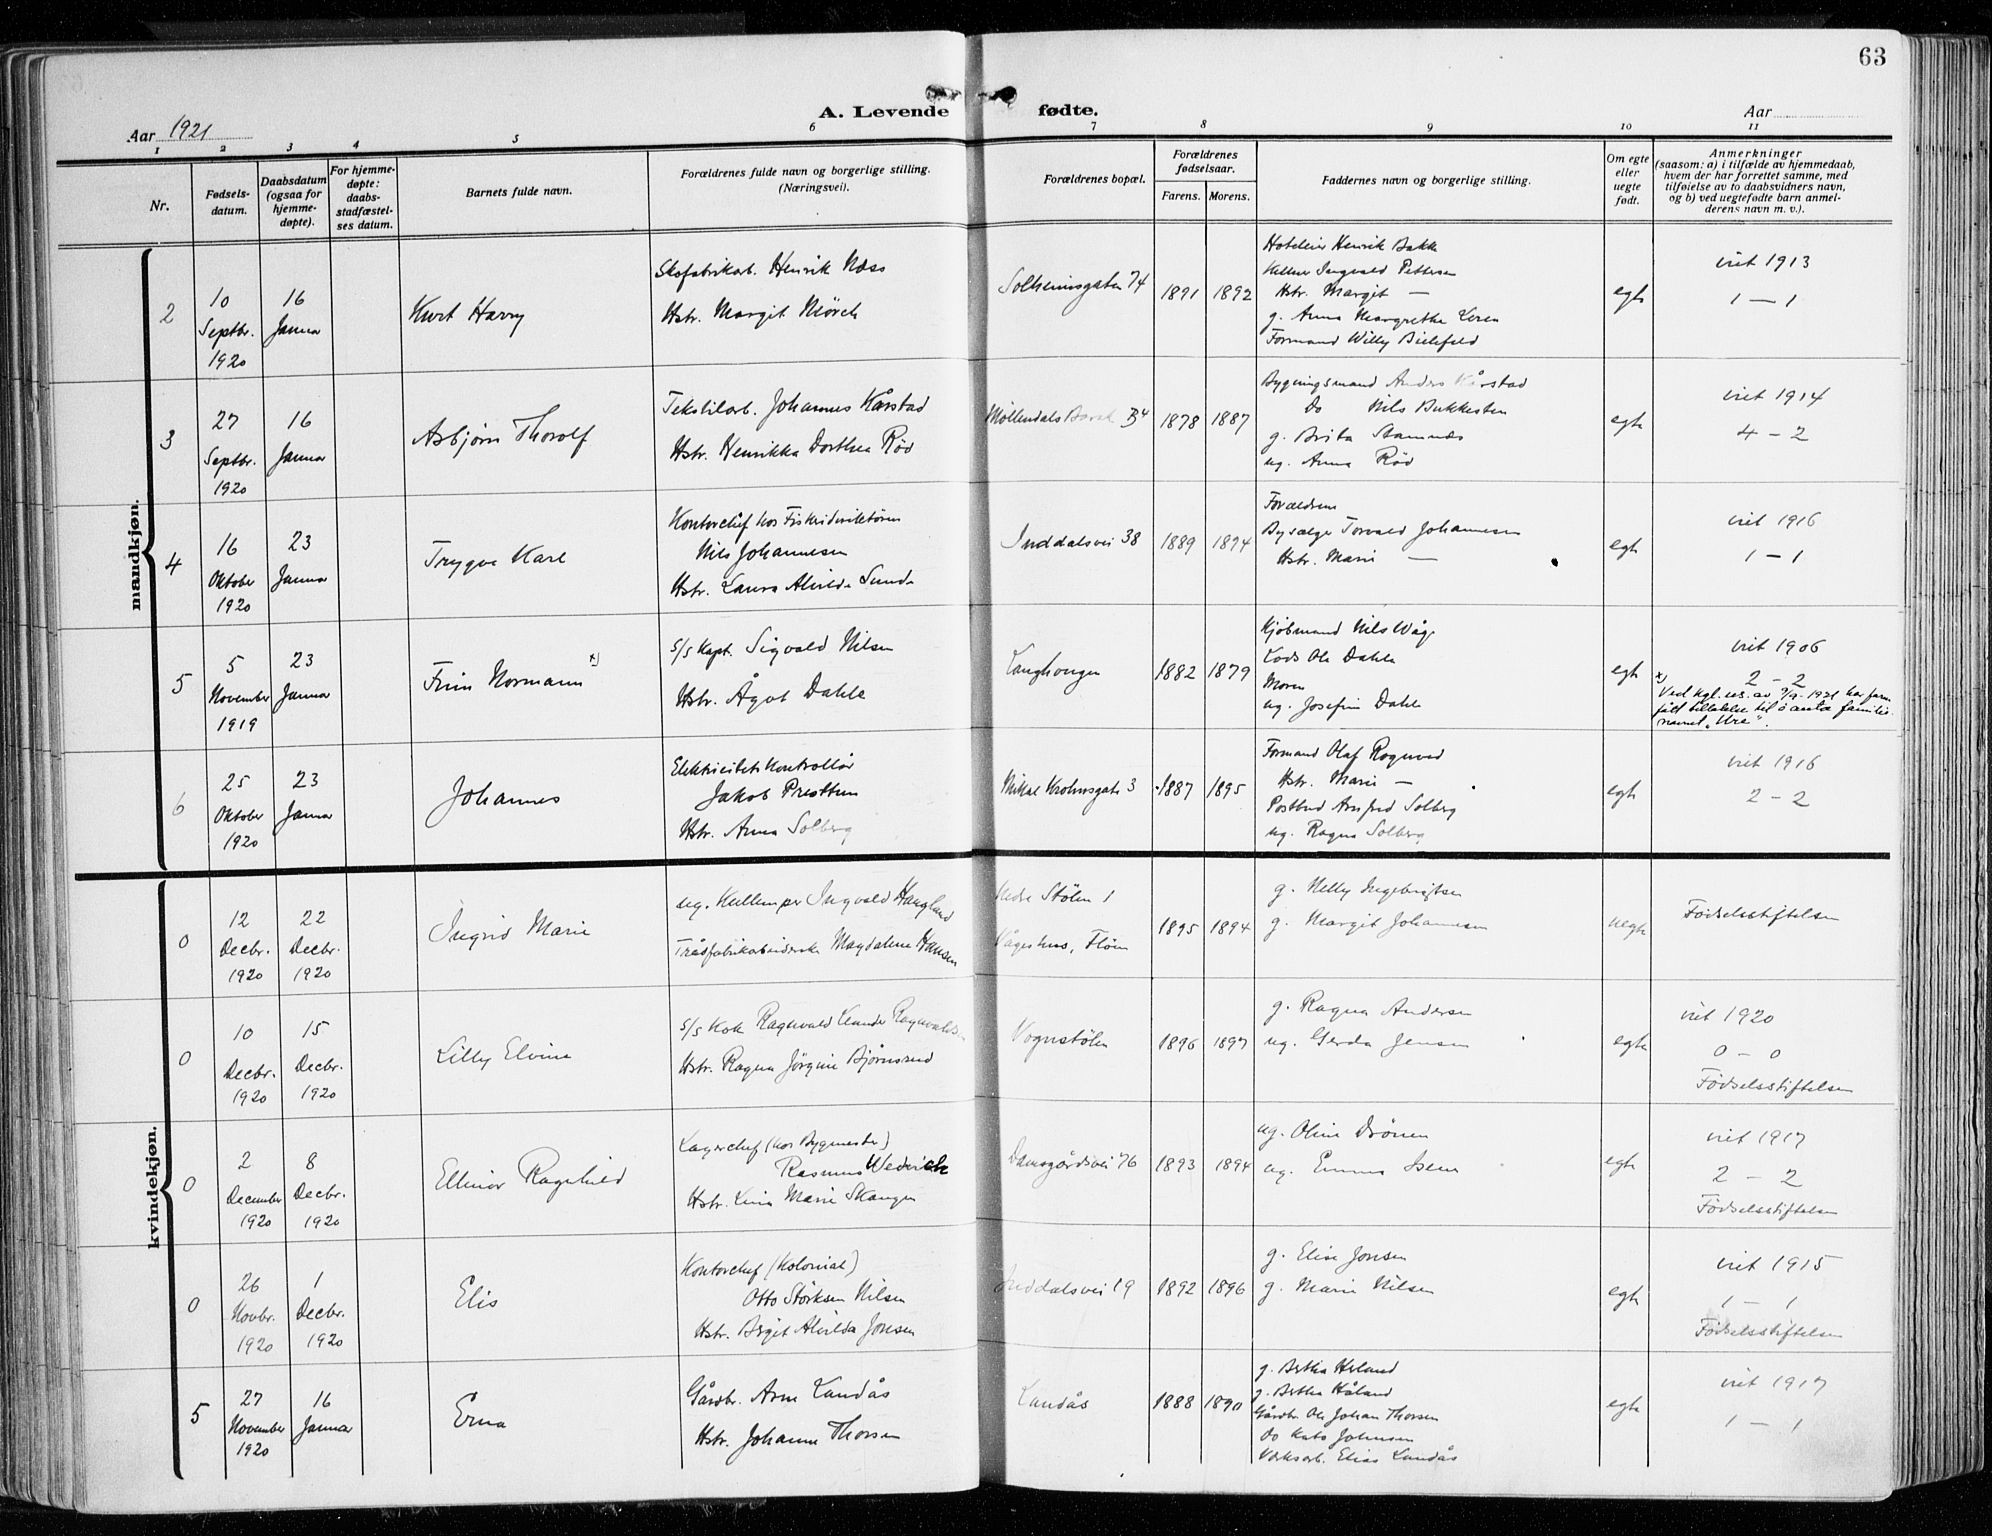 63
A. Levende fødte.
Aar 1921
Aar
1 2 3 4 5 6 7 8 9 10 11
Nr.
Fødsels-
datum.
Daabsdatum
(ogsaa for
hjemme-
døpte).
For hjemme-
døpte:
daabs-
stadfæstel-
ses datum.
Barnets fulde navn.
Forældrenes fulde navn og borgerlige stilling.
(Næringsvei).
Forældrenes bopæl.
Forældrenes
fødselsaar.
Farens. Morens.
Faddernes navn og borgerlige stilling.
Om egte
eller
uegte
født.
Anmerkninger
(saasom: a) i tilfælde av hjemmedaab,
hvem der har forrettet samme, med
tilføielse av to daabsvidners navn,
og b) ved uegtefødte barn anmel-
derens navn m. v.).
mandkjøn.
2
10
Septbr.
1920
16
Januar
Kurt Harry
Skofabrikarb. Henrik Næss
Hstr. Margit Mörch
Solheimsgaten 74
1891 1892
Henrik Bakke
Kellner Ingvald Pettersen
Hstr. Margit —
g. Anna Margrethe
Formand Willy Bielefeld
egte
viet 1913
1 — 1
3
27
Septbr.
1920
16
Januar
Asbjørn Thorolf
Tekstilarb. Johannes Kårstad
Hstr. Henrikka Dorthea Rød
Möllendals Barak B4
1878 1887
Bygningsmand Anders Kårstad
Do Nils Bukkesten
g. Brita Stamnes
ug. Anna Rød
egte
viet 1914
4 – 2
4
16
Oktober
1920
23
Januar
Trygve Karl
Kontorchef hos Fiskeridirektören
Nils Johannesen
Hstr. Laura Alvilde Sunde
Inddalsvei 38
1889 1894
Forældrene
Torvald Johannesen
Hstr. Marie —
egte
viet 1916
1 – 1
5
5
November
1919
23
Januar
Finn Normann x)
S/S Kapt. Sigvald Nilsen
Hstr. Ågot Dahle
Langhaugen
1882 1879
Kjöbmand Nils Wåge
Lods Ole Dahle
Moren
ug. Josefine Dahle
egte
viet 1906
2 – 2
x)
Ved kgl. res. av 9/9-1921 har faren
fått tillatelse til å anta familie-
navnet „Ure“.
6
25
Oktober
1920
23
Januar
Johannes
Elektricitetskontrollør
Jakob Presttun
Hstr. Anna Solberg
Mikal Krohnsgate 3
1887 1895
Formand Olaf Rognved
Hstr. Marie —
Postbud Arnfred Solberg
ug. Ragna Solberg
egte
viet 1916
2 – 2
kvindekjøn.
0
12
Decbr.
1920
22
Decbr.
1920
Ingrid Marie
ug. Kullemper Ingvald Haugland
Trådfabrikarbeiderske Magdalene Hansen
Indre Stölen 1
Vågeshus, Flöien
1895 1894
g. Nelly Ingebrigtsen
g. Margit Johannesen
uegte
Födselsstiftelsen
0
10
Decbr.
1920
15
Decbr.
1920
Lilly Elvine
S/S Kok Ragnvald Leander Ragnvaldsen
Hstr. Ragna Jörgine Bjørnsrud
Vognstölen
1896 1897
g. Ragna Andersen
ug. Gerda Jensen
egte
viet 1920
0 – 0
Födselsstiftelsen
0
2
December
1920
8
Decbr.
1920
Ellinor Ragnhild
Lagerchef (hos Bygmester)
Rasmus Wedvick
Hstr. Lina Marie Skaugen
Damsgårdsvei 76
1893 1894
ug. Oline Drönen
ug. Emma Isene
egte
viet 1917
2 – 2
Födselsstiftelsen
0
26
Novbr.
1920
1
Decbr.
1920
Elis
Kontorchef (Kolonial)
Otto Störksen Nilsen
Hstr. Birgit Alvilda Jonsen
Inddalsvei 19
1892 1896
g. Elise Jonsen
g. Marie Nilsen
egte
viet 1915
1 – 1
Födselsstiftelsen
5
27
November
1920
16
Januar
Erna
Gårdbr. Arne Landås
Hstr. Johanne Thorsen
Landås
1888 1890
g. Bertha Heland
g. Bertha Håland
Gårdbr. Ole Johan Thorsen
Do Kato Johnsen
Værksarb. Elias Landås
egte
viet 1917
1 – 1